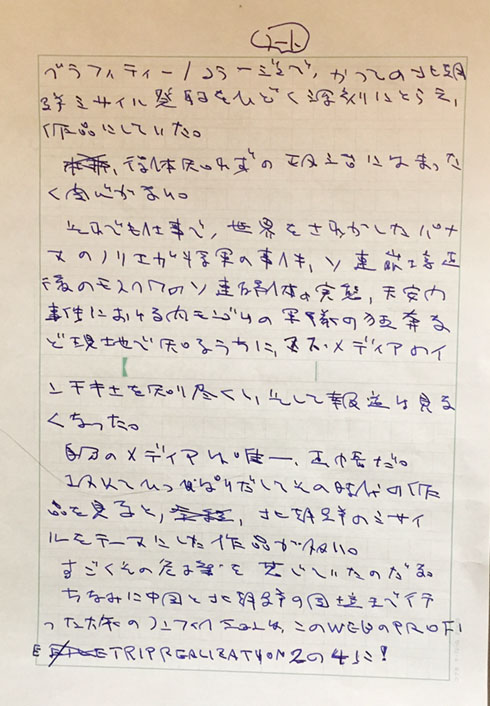 グラフィティー/コラージュで、かつての北朝
鮮ミサイル発射をひどく深刻にとらえ、
作品にしていた。
の
く関心がない。
それでも仕事で、世界をさわがしたパナ
マのノリエガ将軍の事件、ソ連崩壊直
後のモスクワのソ連解体の実態、天安門
事件における内モンゴルの軍隊の狂奔な
ど現地で知るうちに、マス・メディアのイ
ンチキさを知り尽くし、そして報道は見な
くなった。
自分のメディアは唯一、画帳だ。
ひっぱりだしてその時代の作
品を見ると、北朝鮮のミサイ
ルをテーマにした作品が多い。
すごくその危機を感じていたのだろう。
ちなみに中国と北朝鮮の国境まで行
った旅の は、このWEBのPROFI
LE TRIP REALIZATION 2の45に!